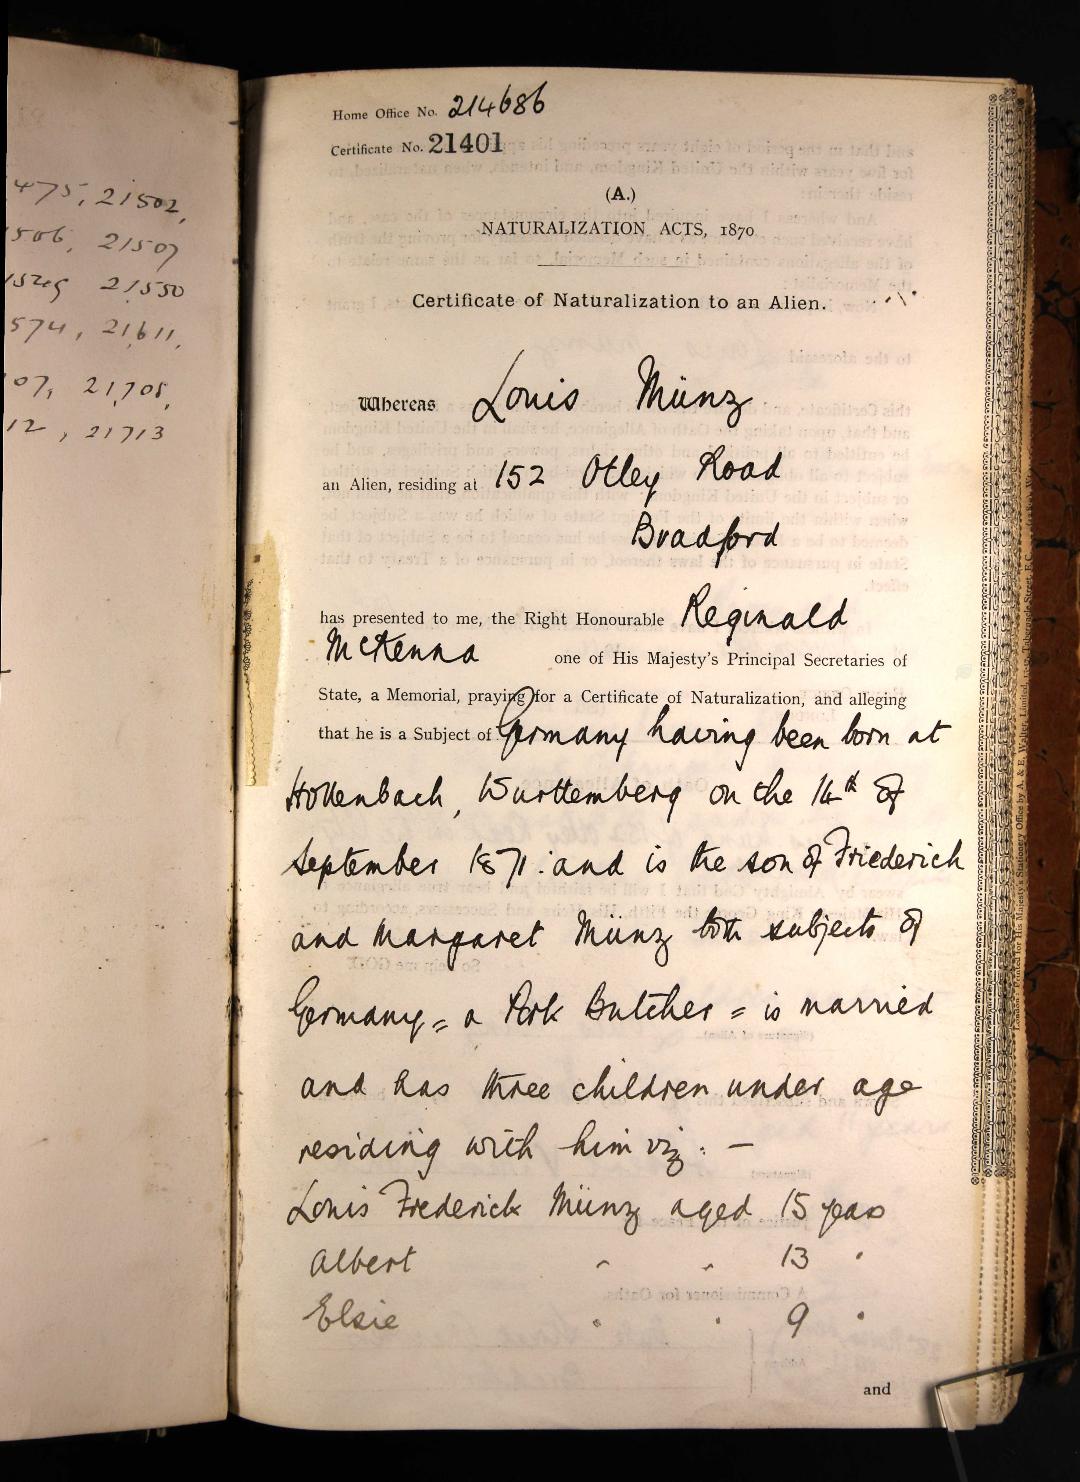 475, 21502,
1506, 21507
1549 21550
574, 21611,
07, 21708,
12, 21713
Home Office No. 214686
Certificate No. 21401
(A.)
NATURALIZATION ACTS, 1870
Certificate of Naturalization to an Alien.
Whereas Louis Münz
an Alien, residing at 152 Otley Road
Bradford
has presented to me, the Right Honourable Reginald
McKenna one of His Majesty's Principal Secretaries of
State, a Memorial, praying for a Certificate of Naturalization, and alleging
that he is a Subject of Germany having been born at
Hollenbach, Wurttemberg on the 14th of
September 1871: and is the son of Friederich
and Margaret Münz both subjects of
Germany = a Pork Butcher = is married
and has three children under age
residing with him viz: —
Louis Frederick Münz aged 15 years
Albert " " 13 "
Elsie " " 9 "
and